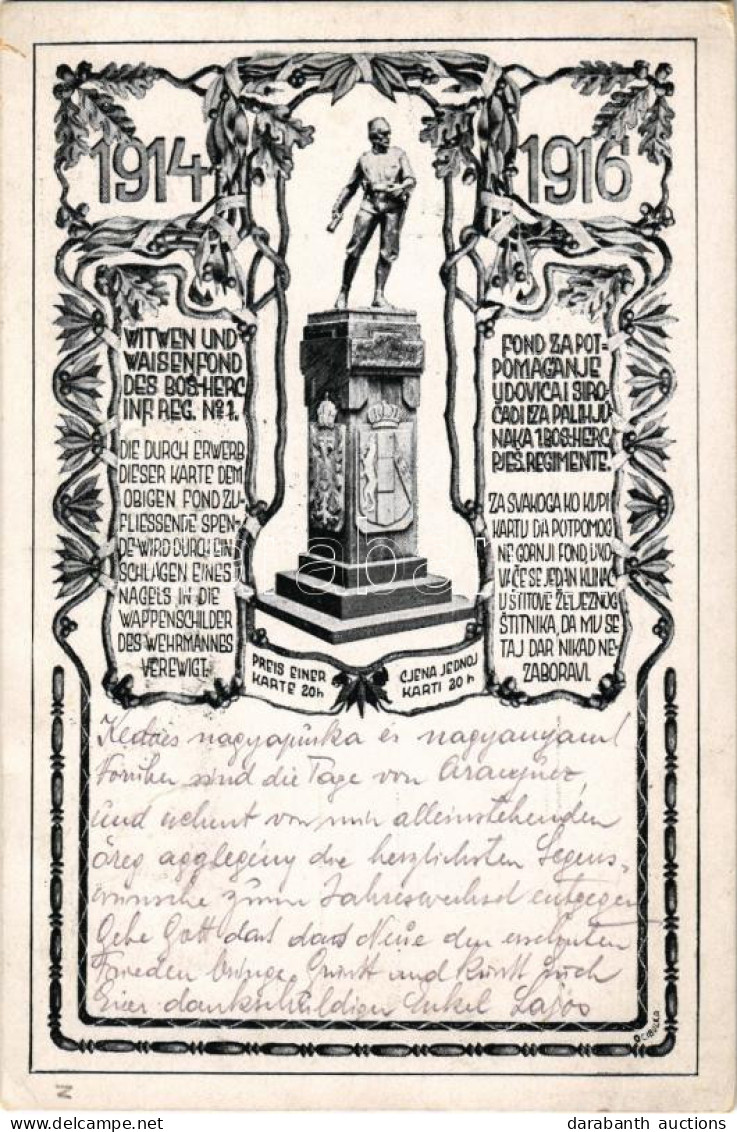 1914
1916
WITWEN UND
WAISENFOND
DES BOS:HERC
INF. REG. No 1.
DIE DURCH ERWERB
DIESER KARTE DEM
OBIGEN FOND ZU-
FLIESSENDE SPEN-
DE WIRD DURCH EIN-
SCHLAGEN EINES
NAGELS IN DIE
WAPPENSCHILDER
DES WEHRMANNES
VEREWIGT.
FOND ZA POT=
POMAGANJE
UDOVICA I SIRO-
ČADI IZA PALIH JU-
NAKA 1. BOS:HERC.
PJEŠ. REGIMENTE.
ZA SVAKOGA KO KUPI
KARTU DA POTPOMOG
NE GORNJI FOND, UKO
VAČE SE JEDAN KLINAC
U ŠTITOVE ŽELJEZNOG
ŠTITNIKA, DA MU SE
TAJ DAR NIKAD NE-
ZABORAVI.
PREIS EINER
KARTE 20 h
CJENA JEDNOJ
KARTI 20 h
Kedves nagyapúska és nagyanyám!
Vorüber sind die Tage von Aranjuez,
und nehmt von mir alleinstehenden
öreg agglegény die herzlichsten Segens-
wünsche zum Jahreswechsel entgegen
Gebe Gott dass das Neue den ersehnten
Frieden bringe. Grüsst und küsst euch
Euer dankschuldiger Enkel Lajos
O. CIBULKA
N
darabanth
darabanth auctions